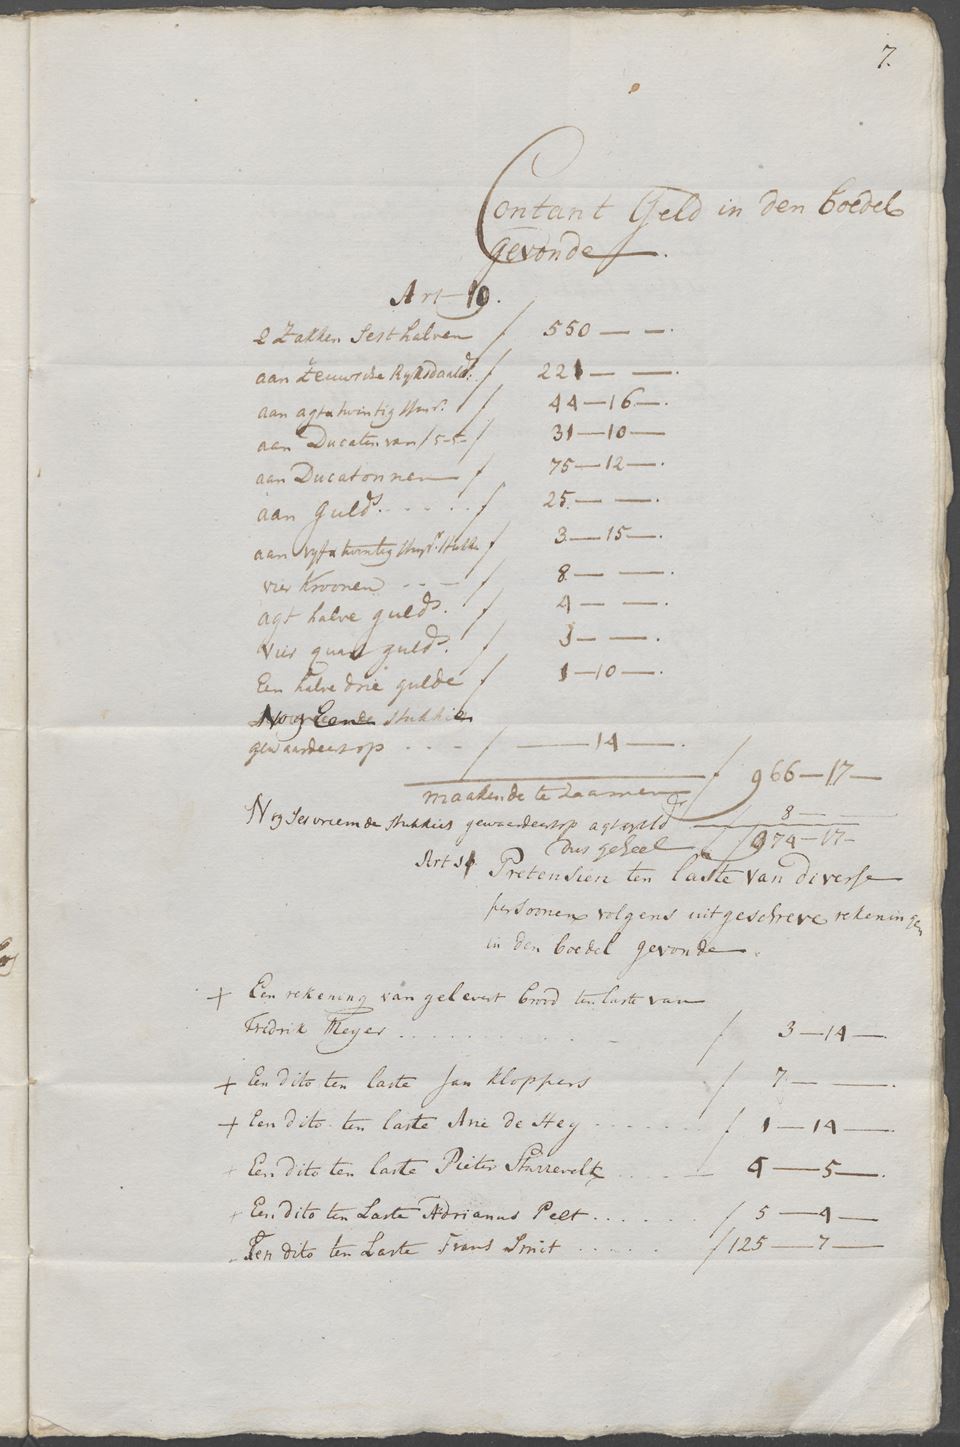 7.
Contant Geld in den boedel
gevonde.
Art 10.
2 Zakken Sesthalven / 550 — —.
aan Zeeuwsche Ryksdaald:s / 221 — —.
aan agt a twintig stuvr. / 44 — 16 —.
aan Ducaten van / 5-5- / 31 — 10 —
aan Ducatonnen / 75 — 12 —.
aan Guld:s . . . . . / 25. — —.
aan vyf a twintig stuyvr. stukk / 3 — 15 —.
vier Kroonen . . — / 8 — —.
agt halve guld:s. / 4 — —.
vier quart guld:s. / 1 — —.
Een halve drie gulde / 1 — 10 —.
Nog Eende stukkies
gewaardeert op . . - / — 14 —.
maakende te zaamen / 966 — 17 —
Nog Ses vriemde stukkies gewaardeert op agt guld 8 — —
Dus geheel / 974 — 17 —
Art 11 Pretensien ten laste van diverse
persoonen volgens uitgeschreve rekeningen
in den boedel gevonde.
+ Een rekening van gelevert brood ten laste van
Fredrik Meyer . . . . . . . / 3 — 14 —
+ Een dito ten laste Jan Kloppers / 7 — —.
+ Een dito ten laste Arie de Hey . . . . . . / 1 — 14 —
+ Een dito ten laste Pieter Starrevelt . . . . — 4 — 5 —.
+ Een dito ten Laste Adrianus Pelt . . . . . . / 5 — 4 —
Een dito ten Laste Frans Smit . . . . . / 125 — 7 —